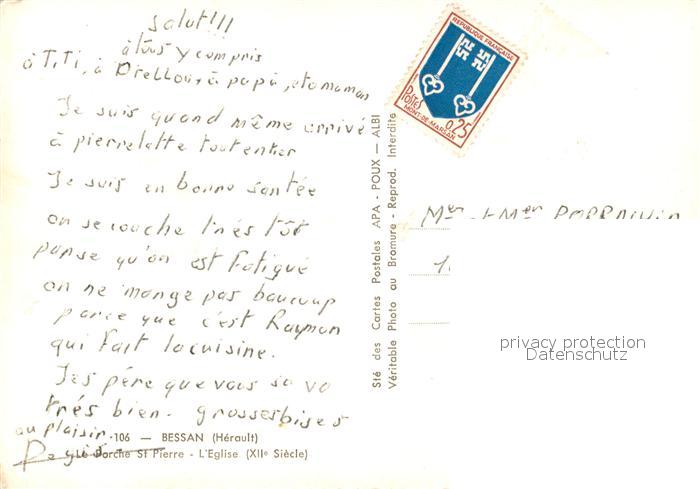 salut!!!
à tous y compris
à TiTi, à Drellou, à papa, et maman
Je suis quand même arrivé
à pierrelatte tout entier
Je suis en bonne santée
on se couche trés tôt
parse qu'on est fatigué
on ne mange pas baucoup
parce que c'est Raymon
qui fait la cuisine.
J'espére que vous sa va
trés bien. grosses bises
au plaisir.
106 — BESSAN (Hérault)
Le Porche St Pierre - L'Eglise (XIIe Siècle)
Sté des Cartes Postales APA - POUX — ALBI
Véritable Photo au Bromure - Reprod. Interdite
REPUBLIQUE FRANÇAISE
POSTES
0,25
MONT-DE-MARSAN
Mer et Mer
privacy protection
Datenschutz